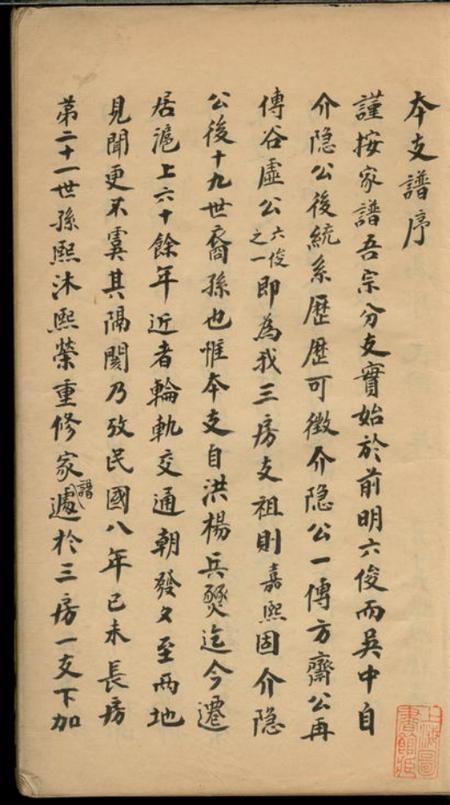 本支譜序
謹按家譜吾宗分支實始於前明六俊而吳中自
介隐公後統系歷歷可徵介隐公一傳方齋公再
傳谷虛公六俊之一即為我三房支祖則嘉熙固介隐
公後十九世裔孫也惟本支自洪楊兵燹迄今遷
居滬上六十餘年近者輪軌交通朝發夕至兩地
見聞更不虞其隔閡乃攷民國八年己未長房
第二十一世孫熙沐熙榮重修家譜遞於三房一支下加
上海圖書館藏